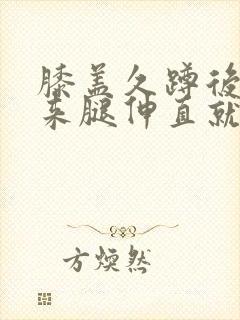 膝盖久蹲後
来腿伸直就
方焕然